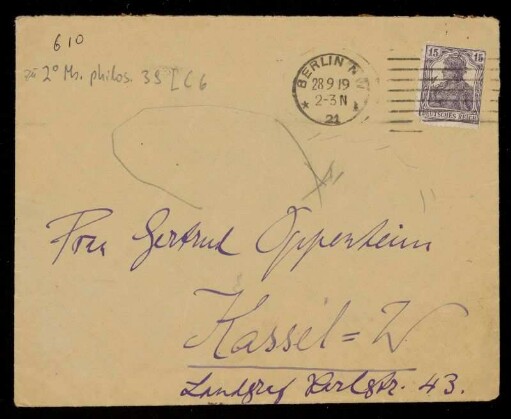 610
2° Ms. philos. 39 [C6
BERLIN N.W
28 9 19
2-3 N
21
15 15
DEUTSCHES REICH
Frau Gertrud Oppenheim
Kassel = W
Landgraf Karlstr. 43.